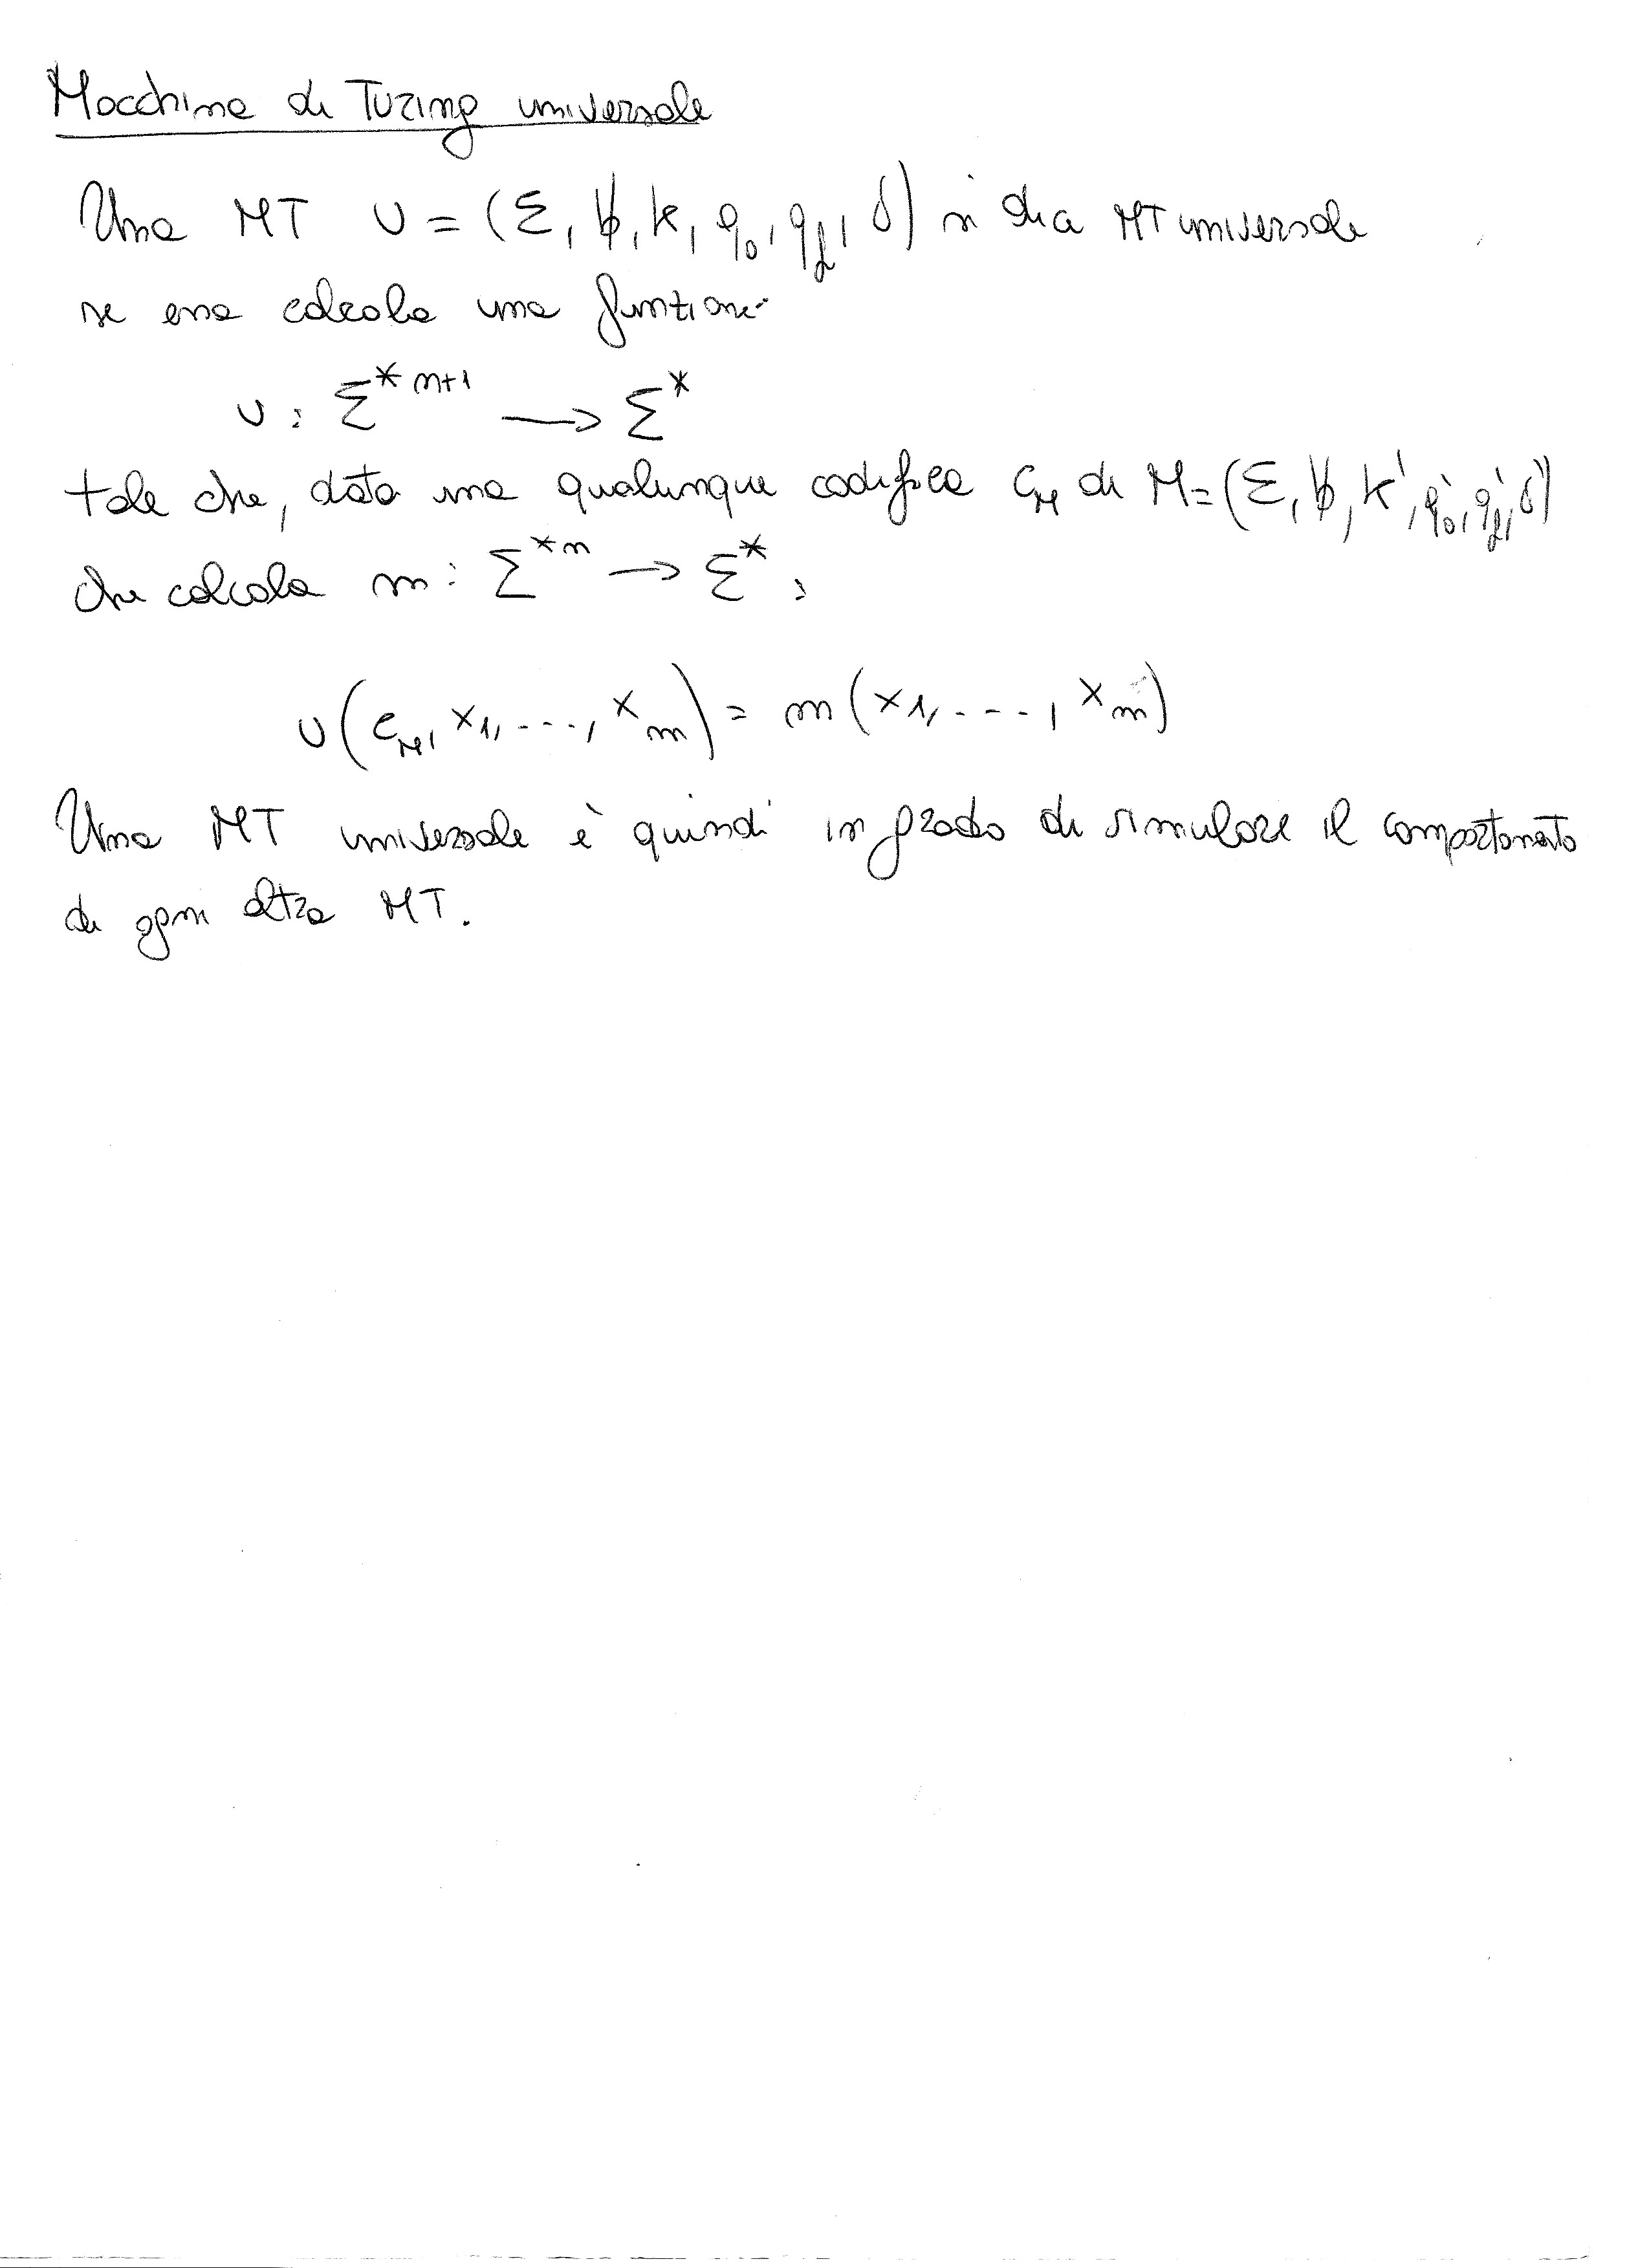 Macchina di Turing universale
Una MT U = (Σ, ƀ, K, q₀, q_f, δ) si dice MT universale
se essa calcola una funzione
u : Σ^{* n+1} → Σ^*
tale che, data una qualunque codifica C_M di M = (Σ, ƀ, K', q₀', q_f', δ')
che calcola m : Σ^{* n} → Σ^* :
u(c_M, x₁, ..., x_n) = m(x₁, ..., x_n)
Una MT universale è quindi in grado di simulare il comportamento
di ogni altra MT.